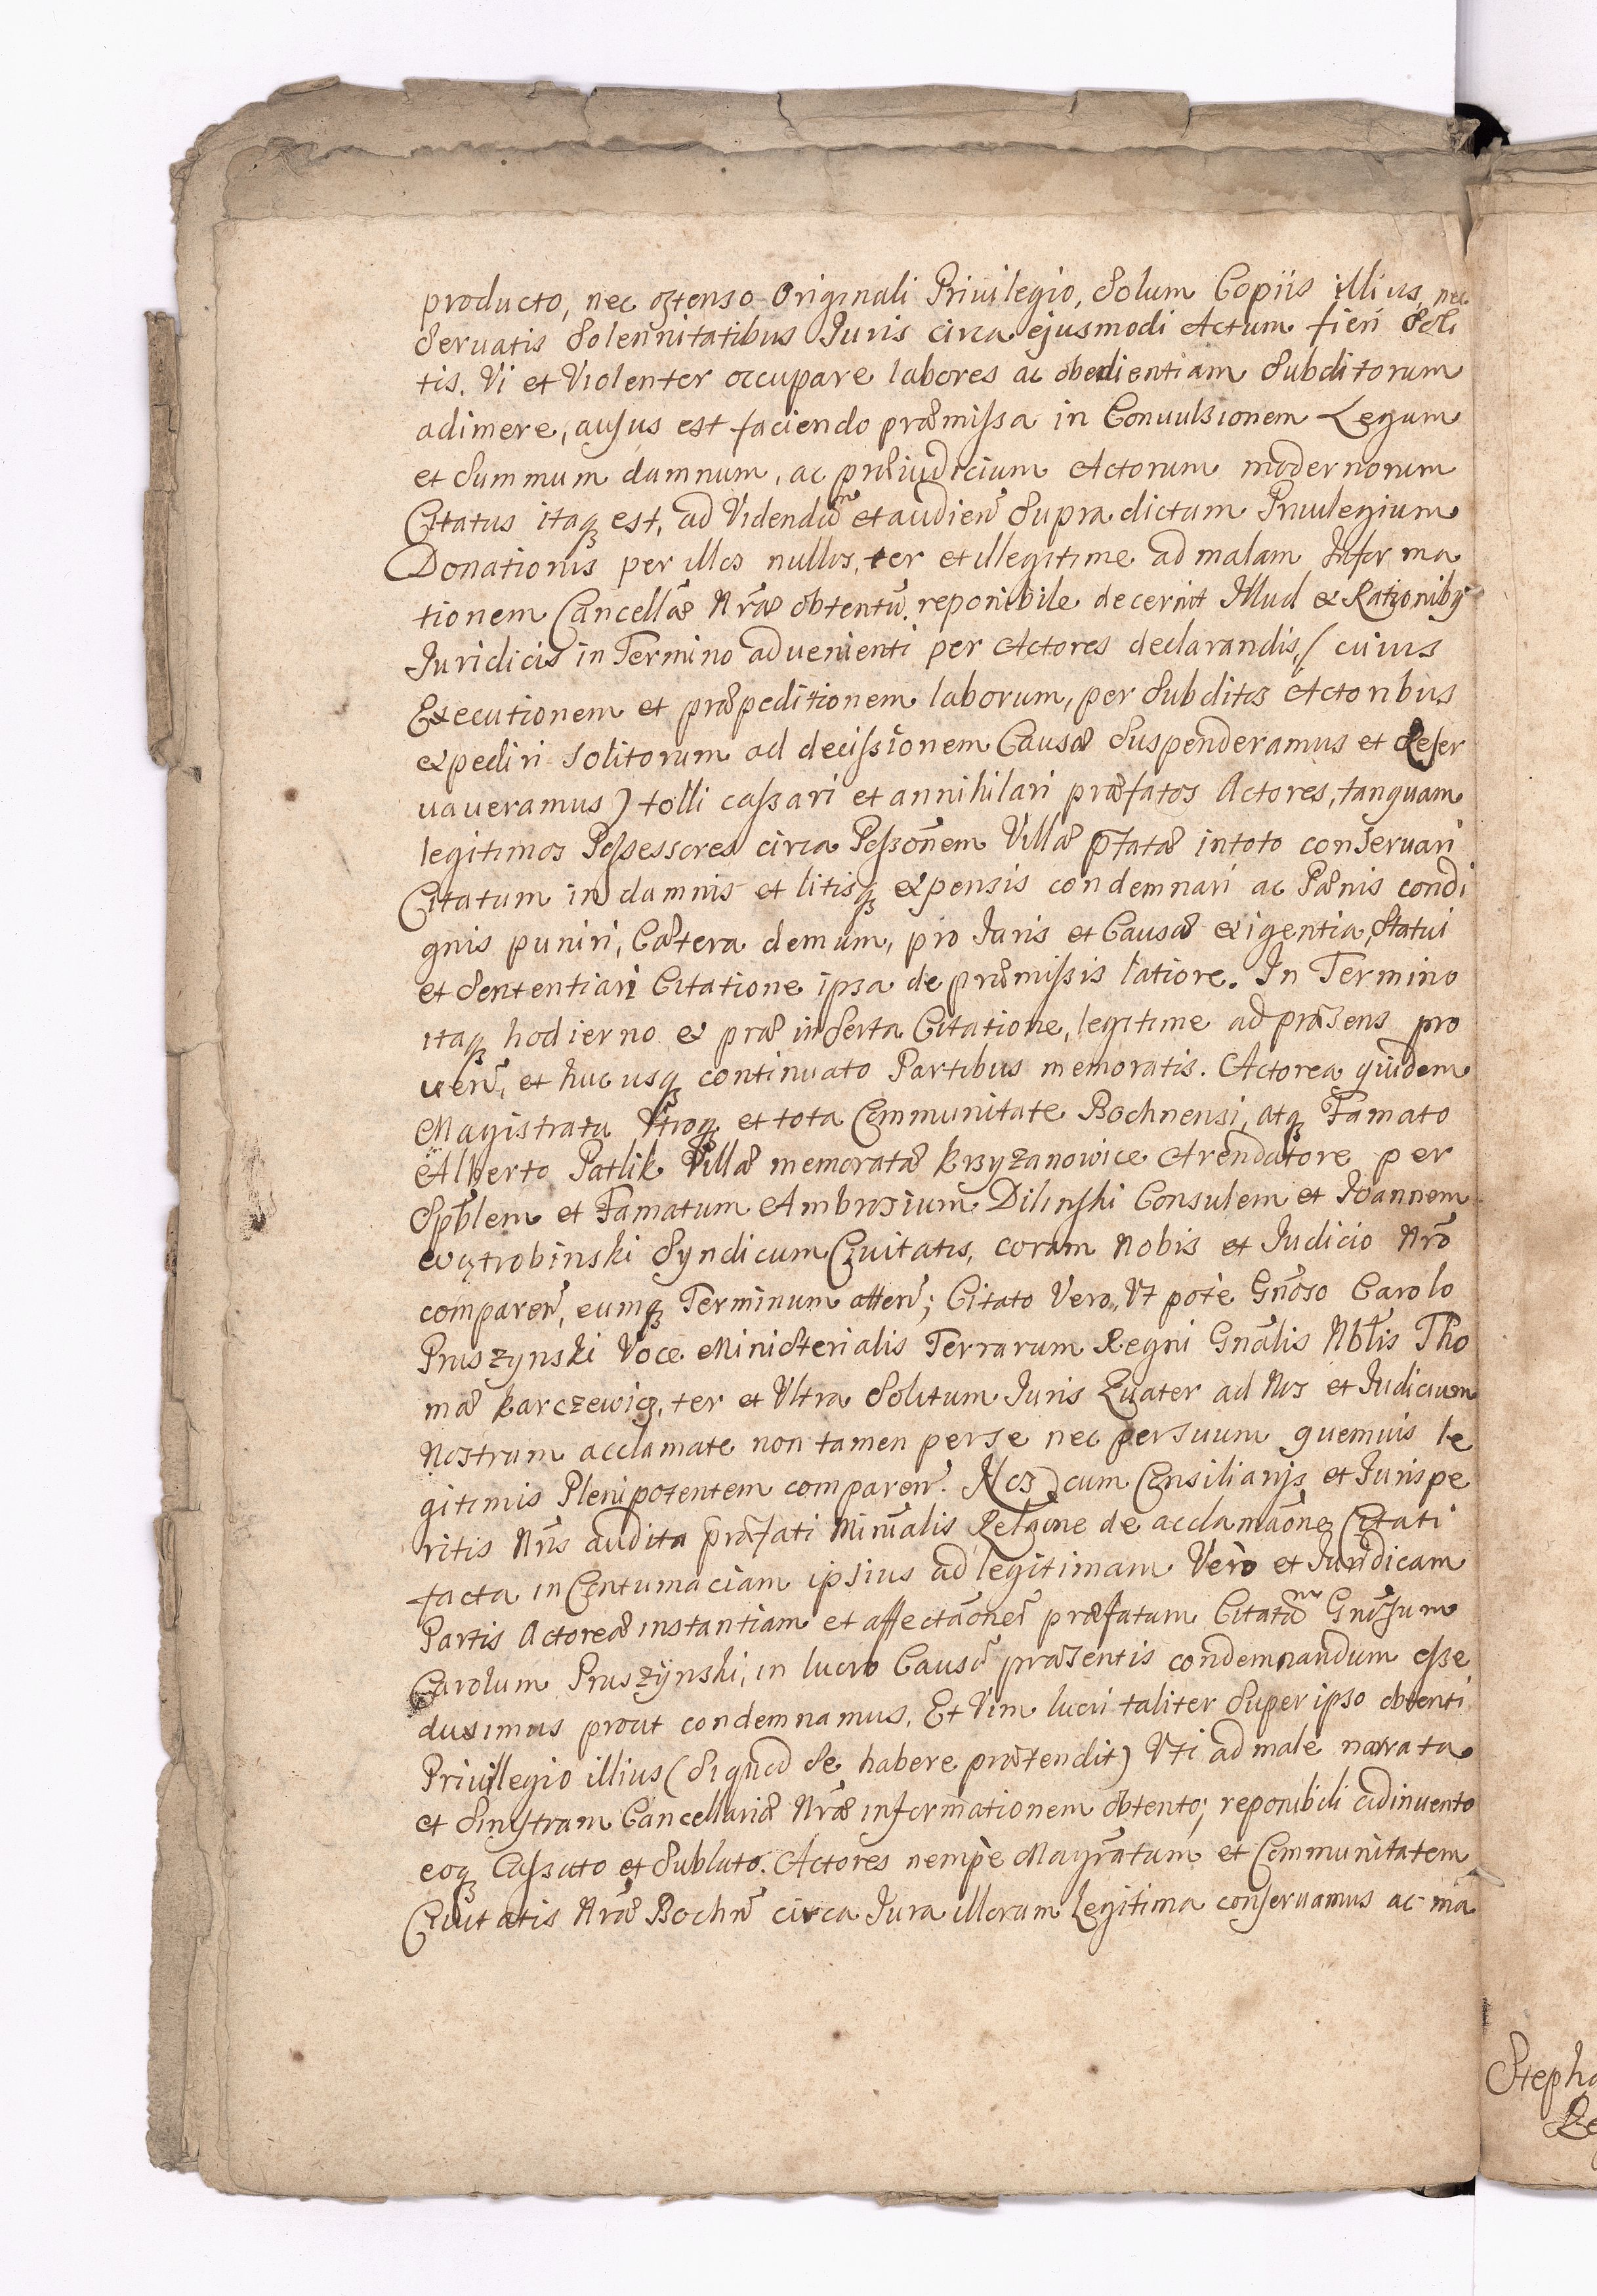 producto, nec ostenso Originali Priuilegio, Solum Copiis illius, nec
Seruatis Solennitatibus Juris circa ejusmodi Actum fieri Soli
tis. Vi et Violenter occupare labores ac obedientiam Subditorum
adimere, ausus est faciendo præmissa in Conuulsionem Legum
et Summum damnum, ac præiudicium Actorum modernorum
Citatus itaqꝫ est, ad Videndũm et audien̄ Supra dictum Priuilegium
Donationis per illos nullis, ter et illegitime ad malam Informa
tionem Cancellæ̃ Nr̃æ obtentũ. reponibile decernit Illud ex Rationibꝫ
Juridicis in Termino aduenienti per Actores declarandis, (cuius
Executionem et præpeditionem laborum, per Subditos Actoribus
expediri solitorum ad decissionem Causæ Suspenderamus et Reser
uaueramus) tolli cassari et annihilari præfatos Actores, tanquam
legitimos Possessores circa Possoñem Villæ pr̃tatæ in toto conseruari
Citatum in damnis et litisqꝫ expensis condemnari ac Pænis condi
gnis puniri, Cætera demum, pro Juris et Causæ exigentia, Statui
et Sententiari Citatione ipsa de præmissis latiore. In Termino
itaqꝫ hodierno ex præ inserta Citatione, legitime ad præsens pro
uen̄, et huc usqꝫ continuato Partibus memoratis. Actorea quidem
Magistratu Vtroqꝫ et tota Communitate Bochnensi, atqꝫ Famato
Alberto Patlik Villæ memoratæ Krzyzanowice Arendatore per
Spb̃lem et Famatum Ambrosium Dilinski Consulem et Joannem
Wątrobinski Syndicum Ciuitatis, coram Nobis et Judicio Nr̃o
comparen̄, eumqꝫ Terminum atten̄; Citato Vero, Vt pote Gñoso Carolo
Pruszynski Voce Ministerialis Terrarum Regni Gñalis Nob̃lis Tho
mæ Karczewicz, ter et Vltra Solitum Juris Quater ad Nos et Judicium
Nostrum acclamate non tamen per se nec per suum quemuis le
gitimis Plenipotentem comparen̄. Nos cum Consiliarijs et Jurispe
ritis Nr̃is audita præfati Minĩalis Relãone de acclamãone Citati
facta in Contumaciam ipsius ad legitimam Vero et Juridicam
Partis Actoreæ instantiam et affectãonem præfatum Citatũm Gñosum
Carolum Pruszynski, in lucro Causæ præsentis condemnandum esse
duximus prout condemnamus. Et Vim lucri taliter Super ipso obtenti
Priuilegio illius (Si quod Se habere prætendit) Vti ad male narrata
et Sinistram Cancellariæ Nr̃æ informationem obtento; reponibili adinuento
eoqꝫ Cassato et Sublato. Actores nempe Magr̃atum et Communitatem
Ciuitatis Nr̃æ Bochn̄ circa Jura illorum Legitima conseruamus ac ma
Stepha
Re